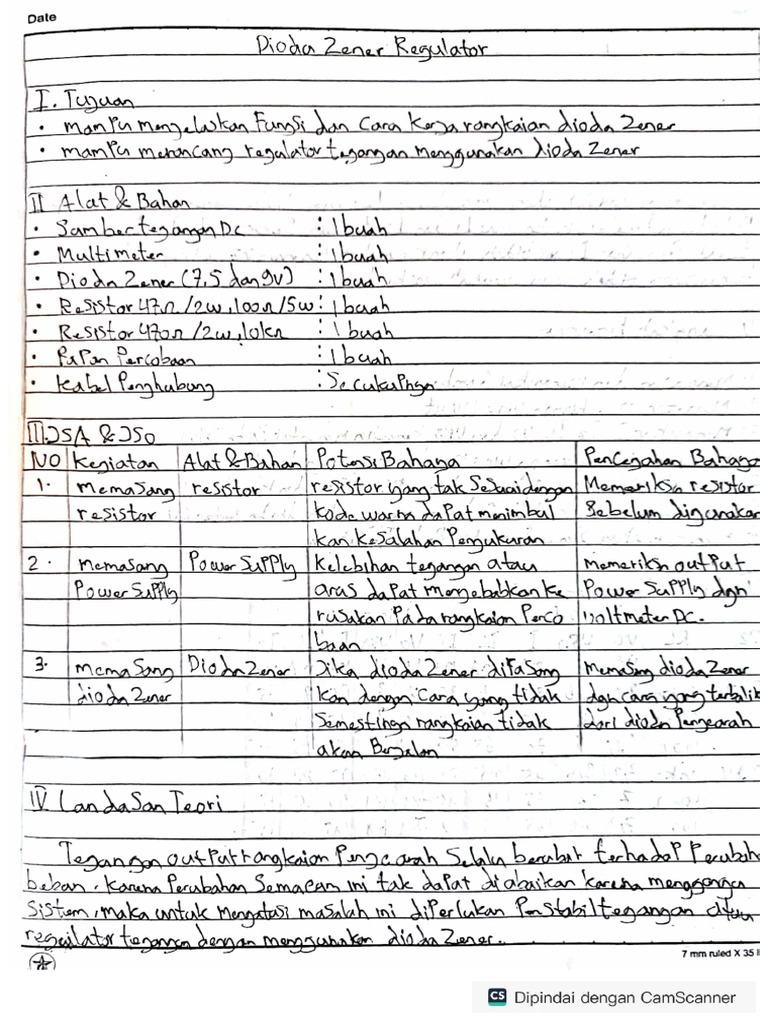 Date
Dioda Zener Regulator
I. Tujuan
• mampu mengelaskan Fungsi dan Cara Kerja rangkaian dioda Zener
• mampu merancang regulator tegangan menggunakan dioda Zener
II Alat & Bahan
• Sumber tegangan Dc : 1 buah
• Multimeter : 1 buah
• Dioda Zener (7,5 dan 9v) : 1 buah
• Resistor 47Ω/2w, 100Ω/5w : 1 buah
• Resistor 470Ω/2w, 10kΩ : 1 buah
• Papan Percobaan : 1 buah
• Kabel Penghubung : Secukupnya
III JSA & JSO
NO Kegiatan Alat & Bahan Potensi Bahaya Pencegahan Bahaya
1. memasang resistor resistor yang tak Sesuai dengan Memeriksa resistor
resistor kode warna dapat menimbul Sebelum digunakan
kan kesalahan Pengukuran
2. Memasang Power Supply Kelebihan tegangan atau memeriksa output
Power Supply arus dapat menyebabkan ke Power Supply dgn
rusakan Pada rangkaian Perco voltmeter DC.
baan
3. memasang Dioda Zener Jika dioda Zener diPasang Memasang dioda Zener
dioda Zener kan dengan Cara yang tidak dgn cara yang terbalik
Semestinya rangkaian tidak dari dioda Penyearah
akan Berjalan
IV Landasan Teori
Tegangan output rangkaian Penyearah Selalu berubah terhadap Perubah
beban. Karena Perubahan Semacam ini tak dapat diabaikan karena mengganggu
Sistem, maka untuk Mengatasi masalah ini diperlukan Penstabil tegangan atau
regulator tegangan dengan menggunakan dioda Zener.
7 mm ruled X 35 li
CS Dipindai dengan CamScanner